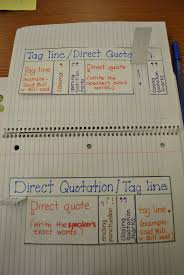 Tag line / Direct Quotation
Tag line
(example:
said Bill
or Bill said)
,
comma
"
opening
quotation
marks
Direct quote
(Write the speaker's
exact words.)
. ? !
"
Direct Quotation / Tag line
"
Direct quote
(Write the speaker's
exact words.)
, ? !
punctuation
"
closing
quotation
marks
tag line.
(example:
said Bill
or Bill said)